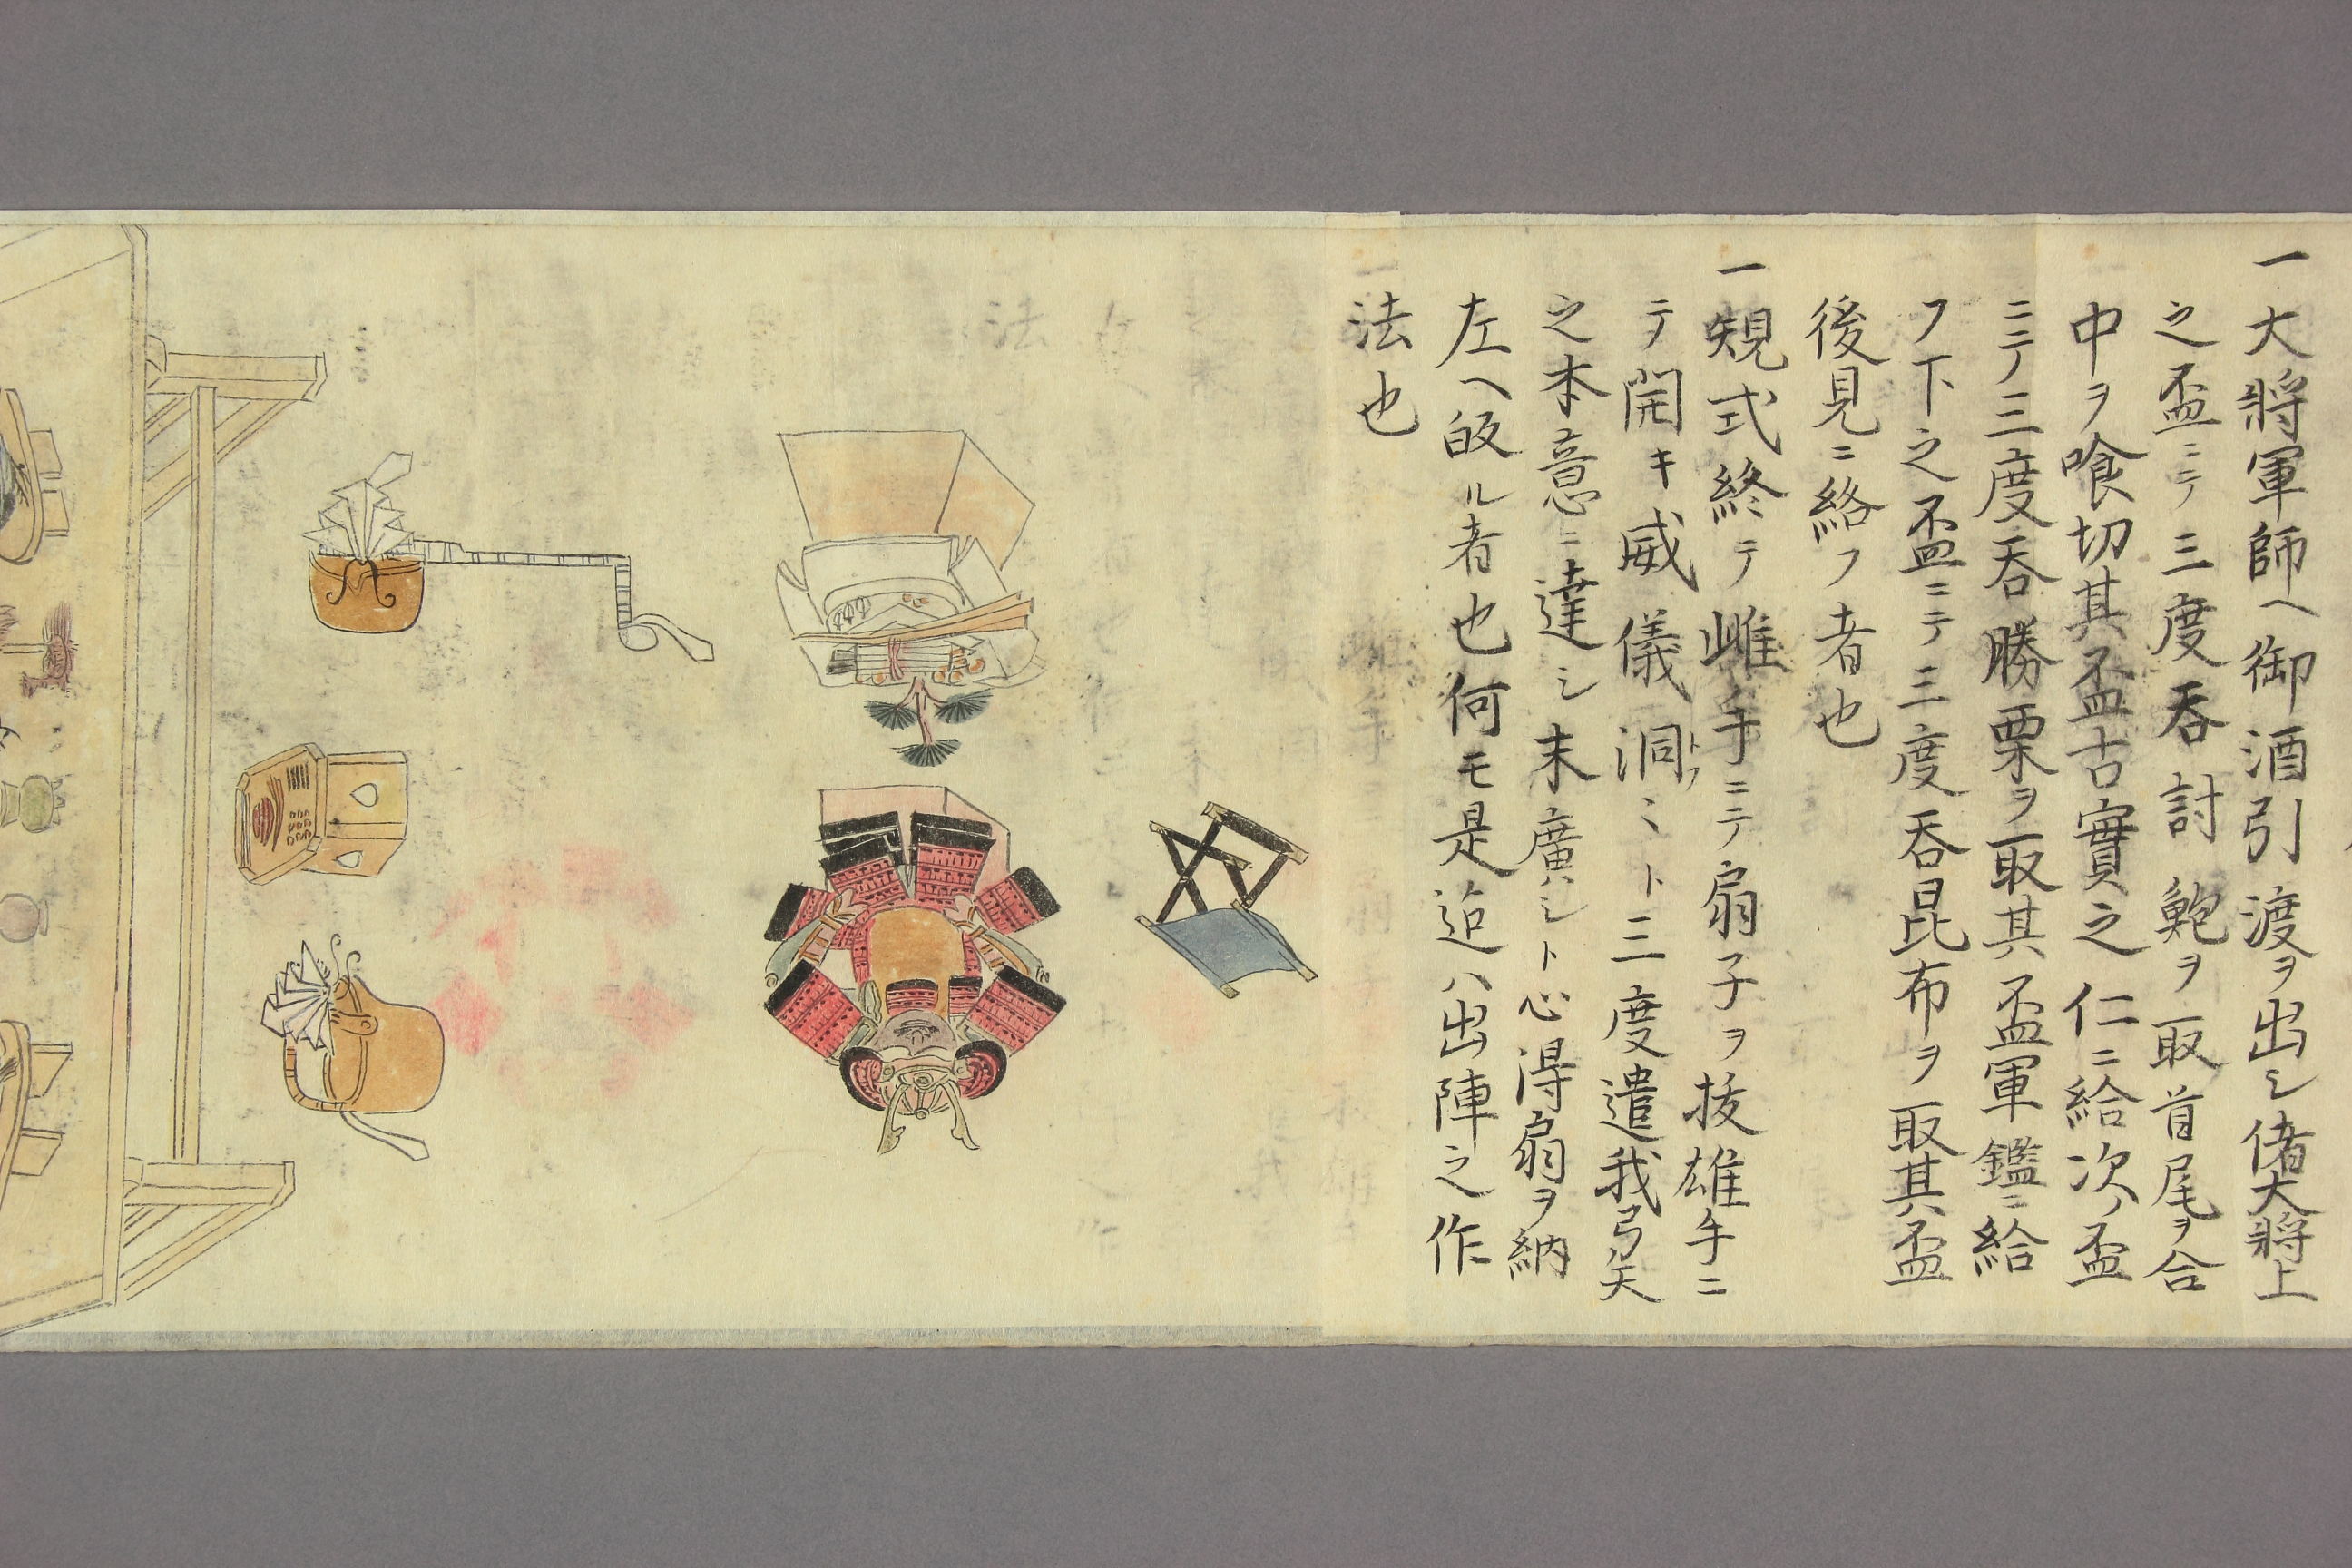 一大將軍師ヘ御酒引渡ヲ出シ偖大將上
之盃ニテ三度呑討鮑ヲ取首尾ヲ合
中ヲ喰切其盃古實之仁ニ給次ノ盃
ニテ三度呑勝栗ヲ取其盃軍鑑ニ給
フ下之盃ニテ三度呑昆布ヲ取其盃
後見ニ給フ者也
一規式終テ雌手ニテ扇子ヲ抜雄手ニ
テ開キ威儀洞ミト三度遣我弓矢
トフ
之本意ニ達シ末廣シト心得扇ヲ納
左ヘ皈ル者也何モ是迠ハ出陣之作
法也